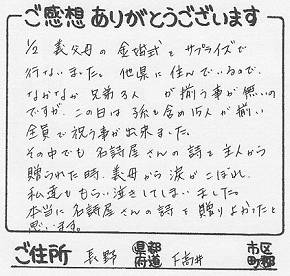 ご感想ありがとうございます
1/2 義父母の金婚式をサプライズで
行ないました。他県に住んでいるので、
なかなか兄弟3人が揃う事が無いの
ですが、この日は孫も含め15人が揃い
全員で祝う事が出来ました。
その中でも名詩屋さんの詩を主人から
贈られた時、義母から涙がこぼれ、
私達ももらい泣きしてしまいました。
本当に名詩屋さんの詩を贈りよかったと
思います。
ご住所 長野 都道府県 市区町郡